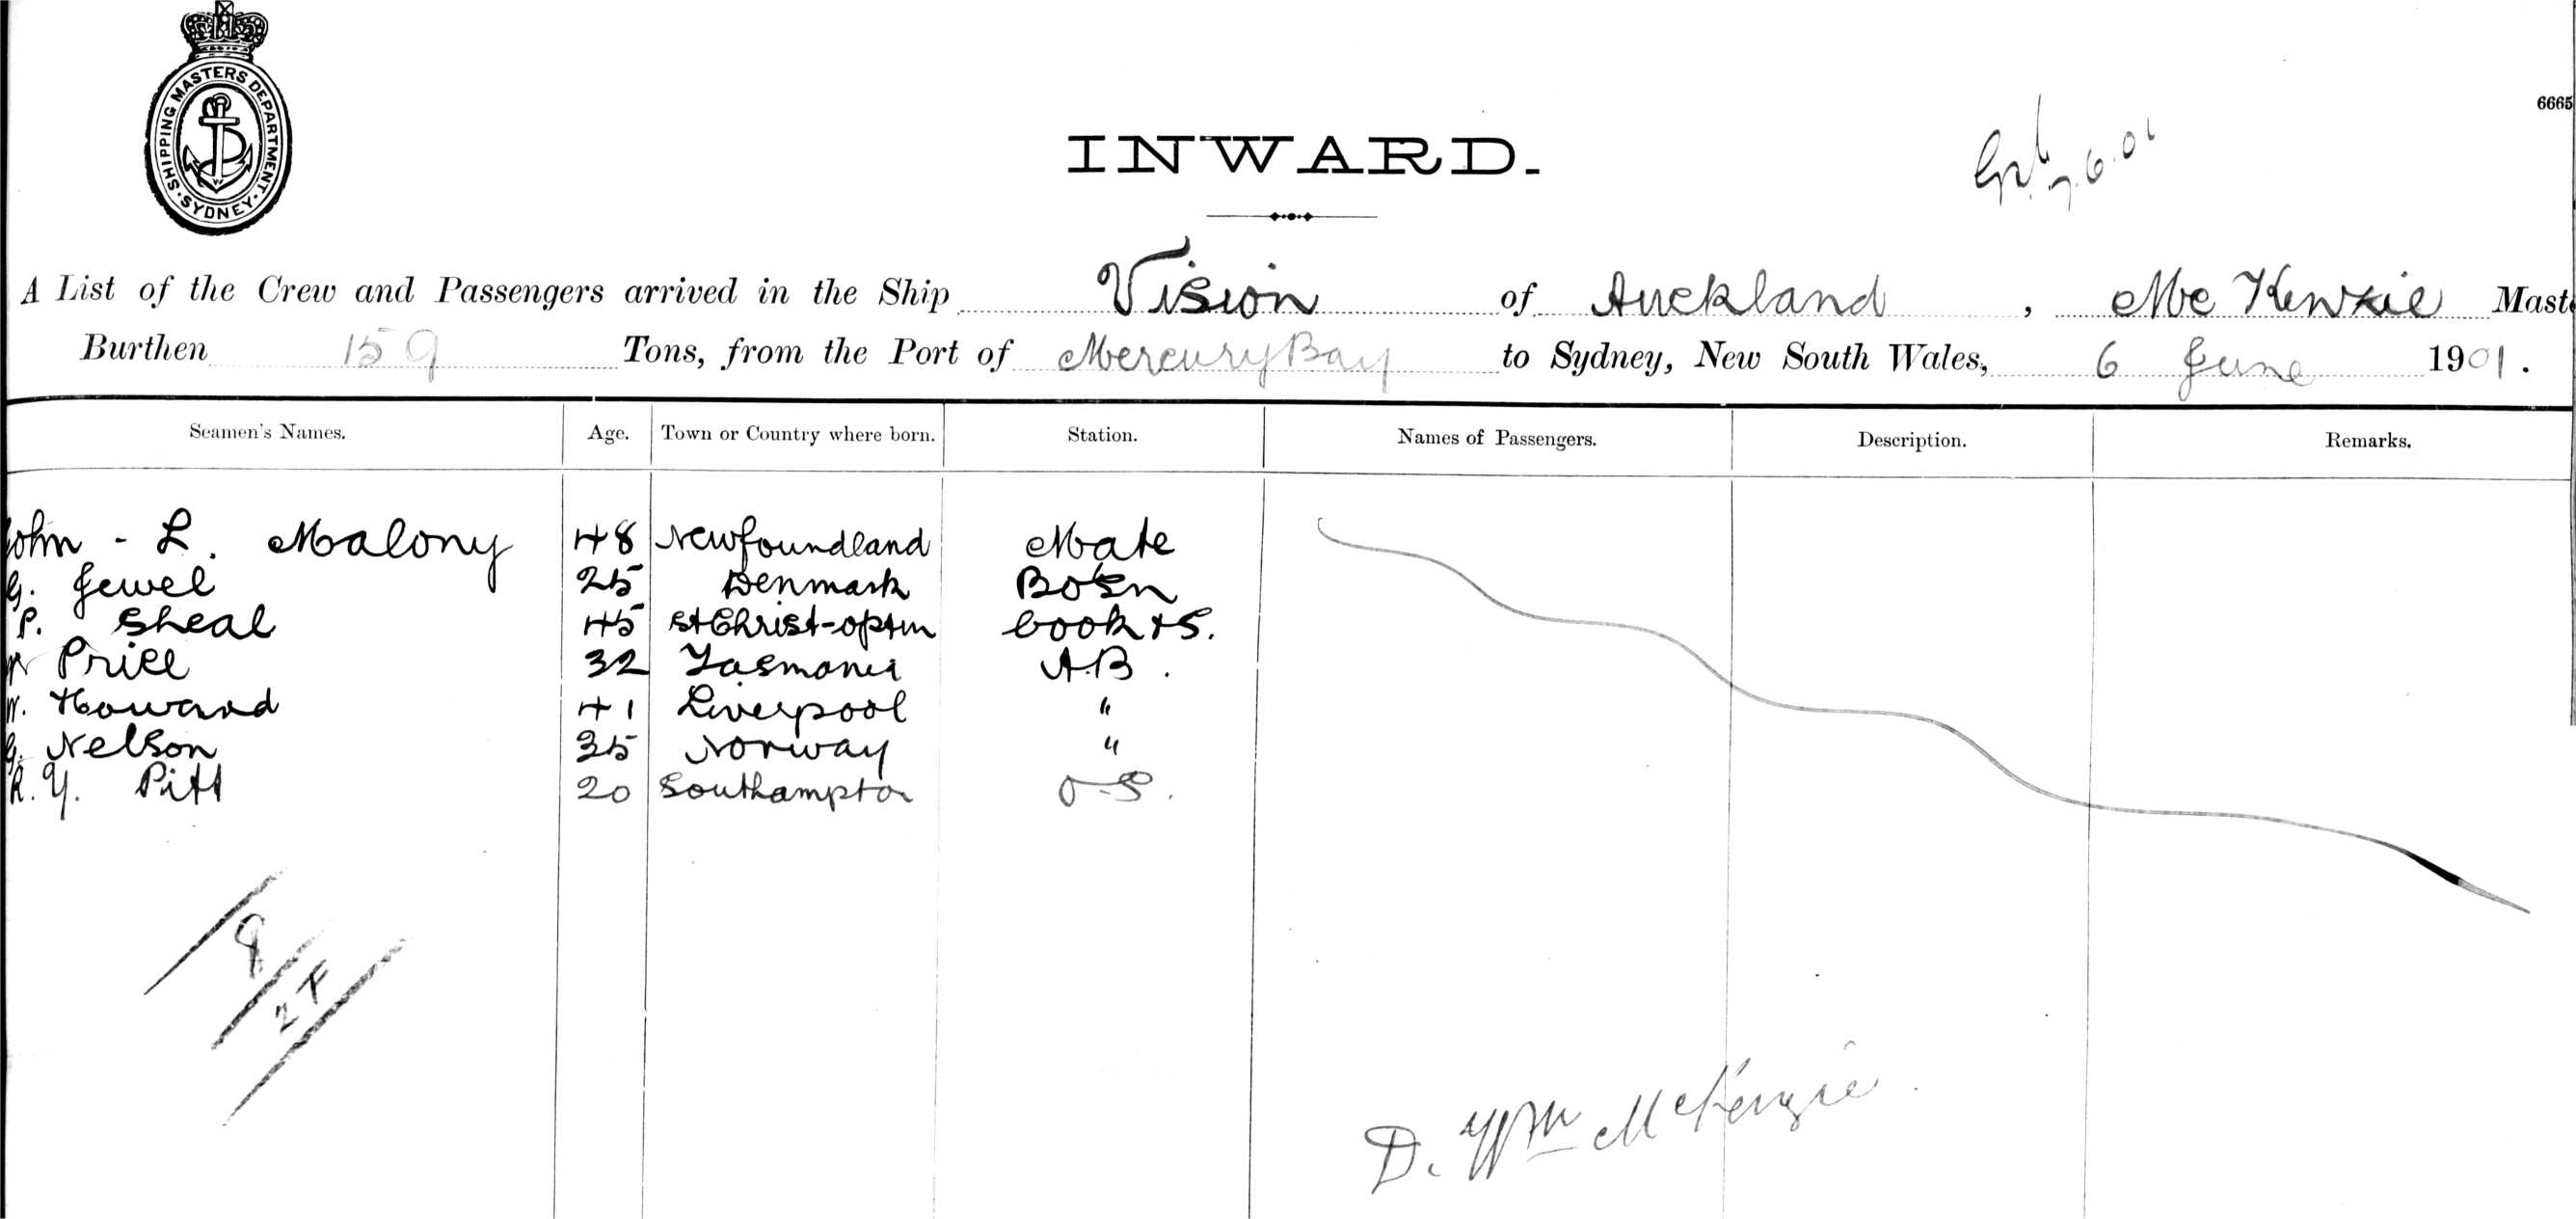 SHIPPING MASTERS DEPARTMENT.
SYDNEY.
6665
INWARD.
7.6.01
A List of the Crew and Passengers arrived in the Ship Vision of Auckland, McKenzie Maste
Burthen 159 Tons, from the Port of Mercury Bay to Sydney, New South Wales, 6 June 1901.
Seamen's Names. Age. Town or Country where born. Station. Names of Passengers. Description. Remarks.
John - L. Malony 48 Newfoundland Mate
G. Jewel 25 Denmark Bo'sn
P. Sheal 45 Cook & S.
Price 32 Tasmania A.B.
W. Howard 41 Liverpool "
G. Nelson 35 Norway "
R. Y. Pitt 20 Southampton O-S.
8
D. Wm McKenzie